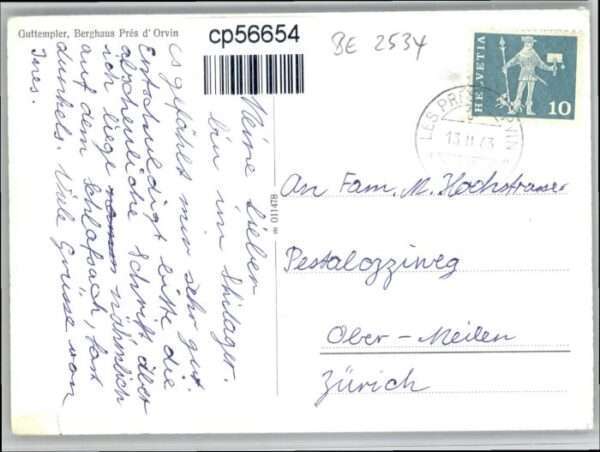 Guttempler, Berghaus Prés d' Orvin
cp56654
BE 2534
HELVETIA
10
LES PRÉS D'ORVIN
13.II.63
Meine Lieben
bin im Skilager.
es gefählt mir sehr gut.
Entschuldigt bitte die
abscheuliche Schrift aber
ich liege nähmlich
auf dem Schlafsack, fast
dunkels. Viele Grüsse von
Ines.
011478
An Fam. M. Hochstrasser
Pestalozziweg
Ober-Meilen
Zürich